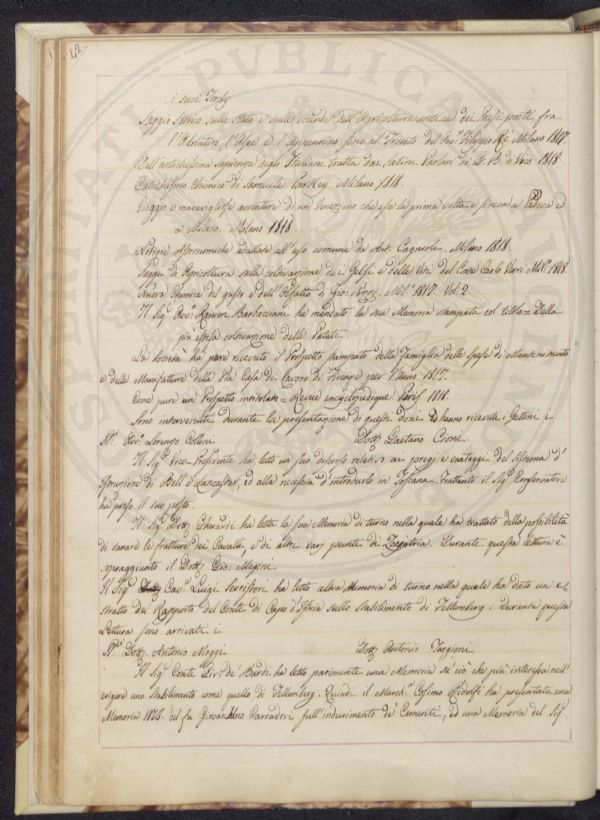 42
i suoi Tordj
Saggio Storico sullo Stato e sulle vicende dell'Agricoltura antica dei Paesi posti fra
l'Adriatico, l'Alpe e l'Appennino sino al Tronto del Sig.r Filippo Re Milano 1817.
Dell'antichissima sapienza degli Italiani tratta dai latini Parlari di G. B. di Vico 1818.
Catechismo Chimico di Samuele Parkey Milano 1818.
Viaggio e maravigliose avventure di un Veneziano che esce la prima volta e si reca a Padova e
a Milano. Milano 1818
Notizie astronomiche adattate all'uso comune da Ant. Cagnoli. Milano 1818.
Saggi di Agricoltura sulla coltivazione dei Gelsi e delle Viti del Cav.e Carlo Verri Mil.o 1818.
Nuova Chimica del gusto e dell'Olfatto di Gio: Mil.o 1817. Vol. 2.
Il Sig.r Rev: Ranieri Barbacciani ha mandato la sua Memoria stampata col titolo = Della
più estesa coltivazione delle Patate.
La Società ha pure ricevuto il Prospetto stampato della Famiglia delle spese di Mantenimento
e delle Manifatture della Pia Casa di Lavoro di Firenze per l'Anno 1817.
Come pure un Prospetto intitolato = Revue encyclopedique Paris 1818.
Sono intervenuti durante la presentazione di questi doni ed hanno ricevuti i Gettoni i
SS.i Lorenzo Collini Dott. Gaetano Cioni
Il Sig.r Vice-Presidente ha letto un suo discorso relativo ai pregj e vantaggi del Sistema d'
istruzione di Bell e Lancaster, ed alla necessità d'introdurlo in Toscana. Frattanto il Sig.r Conservatore
ha preso il suo posto.
Il Sig.r Dott. Gherardi ha letta la sua Memoria di turno nella quale ha trattato della possibilità
di sanare le fratture dei Cavalli, e di altri varj punti di Zoojatria. Durante questa lettura è
sopraggiunto il Dott. Gio. Magini.
Il Sig.r Dott. Cav.e Luigi Serristori ha letto altra Memoria di turno nella quale ha dato un e-
stratto del Rapporto del Conte di Capo d'Istria sullo Stabilimento di Fellemberg. Durante questa
Lettura sono arrivati i
SS.i Dott. Antonio Moggi Dott. Antonio Targioni
Il Sig.r Conte de' Bardi ha letto parimente una Memoria su ciò che più interessa nell'
erigere uno stabilimento come quello di Fellemberg. Quindi il March.e Cosimo Ridolfi ha presentata una
Memoria del fu Giovacchino Carradori sull'indurimento de' Cementi, ed una Memoria del Sig.r